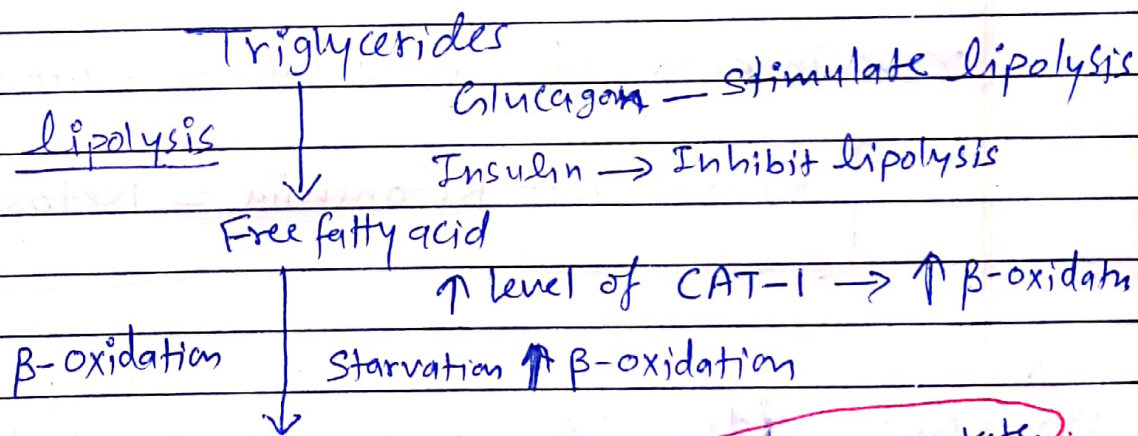 Triglycerides
Glucagon — Stimulate lipolysis
lipolysis
Insulin → Inhibit lipolysis
Free fatty acid
↑ level of CAT-1 → ↑ β-oxidatn
β-oxidation
Starvation ↑ β-oxidation